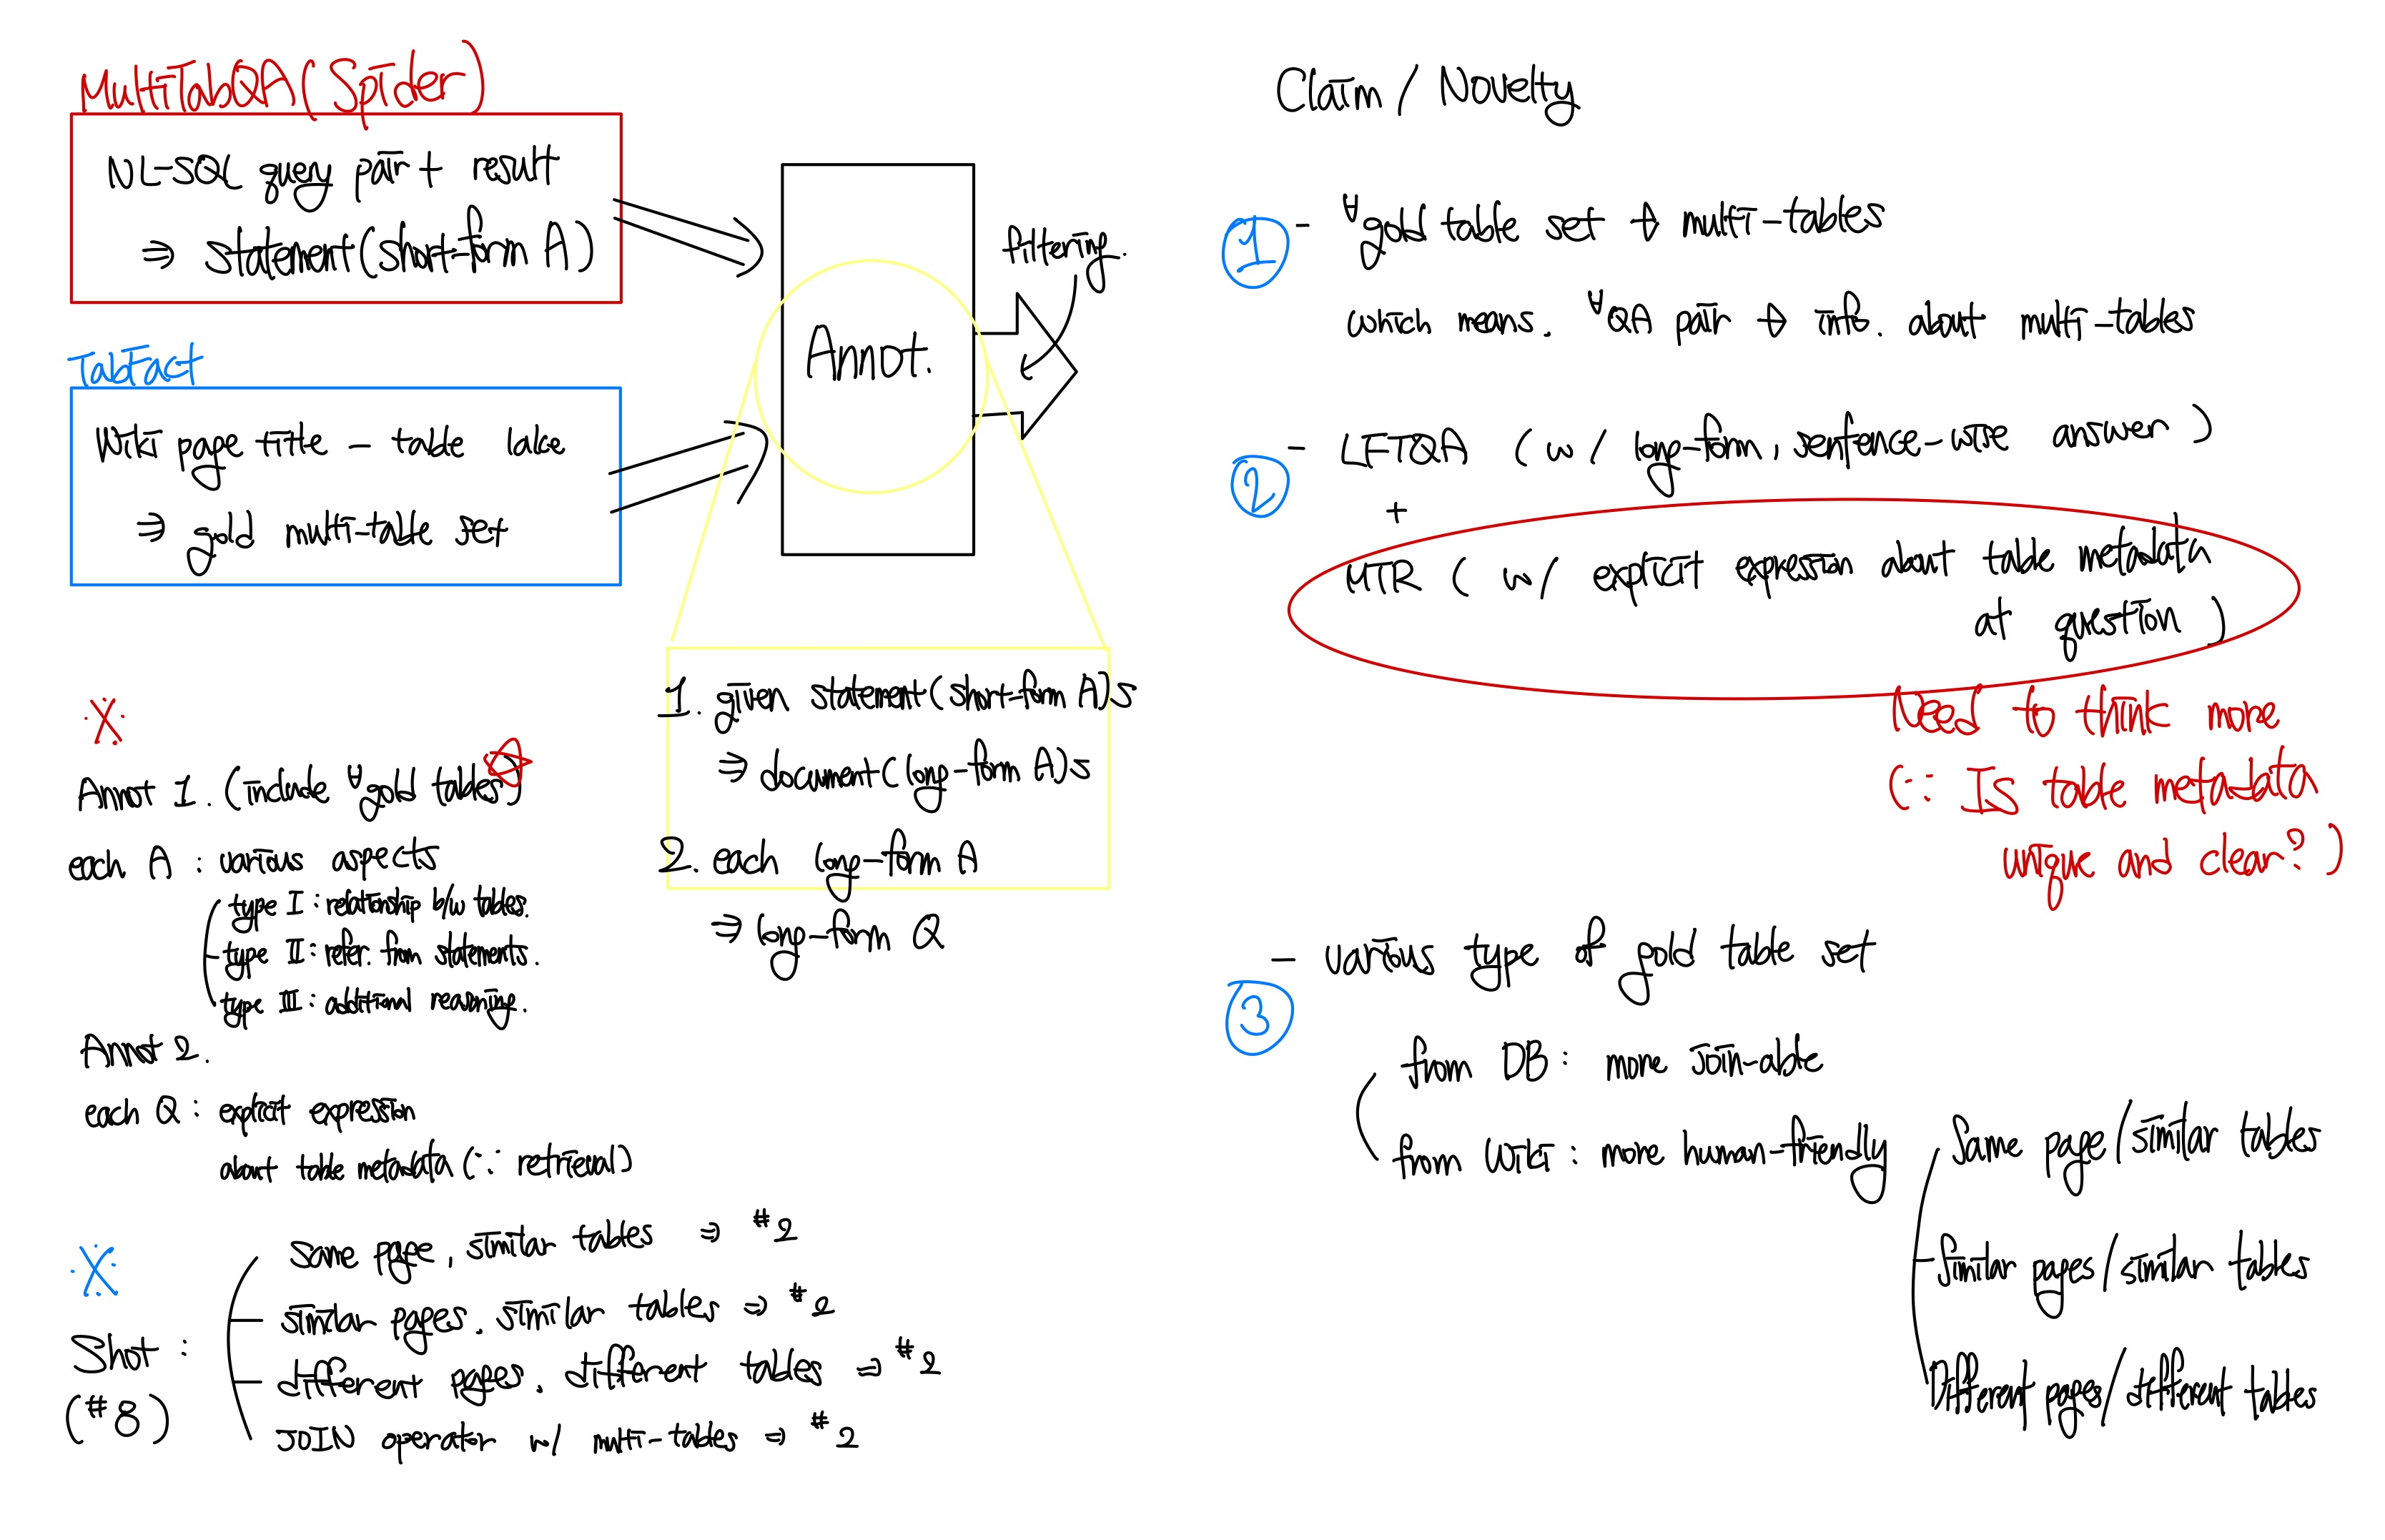 MultiTabQA(Spider)
NL-SQL query pair + result
⇒ statement(short-form A)
TabFact
Wiki page title - table lake
⇒ gold multi-table set
Annot.
filtering.
1. given statement(short-form A)s
⇒ document(long-form A)s
2. each long-form A
⇒ long-form Q
※
Annot 1. (include ∀gold tables)
each A : various aspects
type I : relationship b/w tables.
type II : refer. from statements.
type III : additional reasoning.
Annot 2.
each Q : explicit expression
about table metadata (∵ retrieval)
※
Shot :
(#8)
same page, similar tables ⇒ #2
similar pages, similar tables ⇒ #2
different pages, different tables ⇒ #2
JOIN operator w/ multi-tables ⇒ #2
Claim / Novelty
① - ∀gold table set → multi-tables
which means. ∀QA pair → info. about multi-tables
② - LFTQA (w/ long-form, sentence-wise answer)
+
MTR (w/ explicit expression about table metadata
at question)
Need to think more
(∵ IS table metadata
unique and clear?)
③ - various type of gold table set
from DB : more join-able
from Wiki : more human-friendly
Same page/similar tables
Similar pages/similar tables
Different pages/different tables